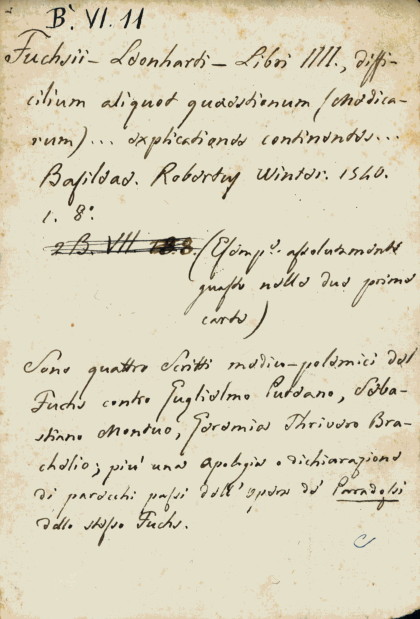 B. VI. 11
Fuchsii - Leonharti - Libri IIII., diffi-
cilium aliquot quaestionum (Medica-
rum)... explicationes continentes...
Basileae. Robertus Winter. 1540.
1. 8.°
2 B. VII
(Esemp.e assolutamente
guasto nelle due prime
carte)
Sono quattro Scritti medico-polemici del
Fuchs contro Guglielmo Puteano, Seba-
stiano Montuo, Geremia Thrivero Bra-
chelio; più una apologia o dichiarazione
di parecchi passi dell'opera de' Paradossi
dello stesso Fuchs.